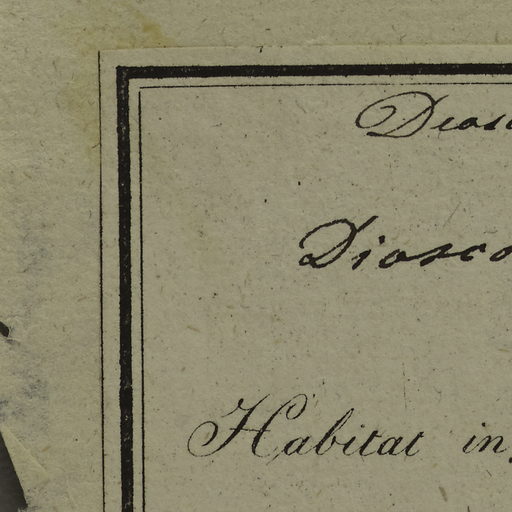 Diosc
Diosco
Habitat in